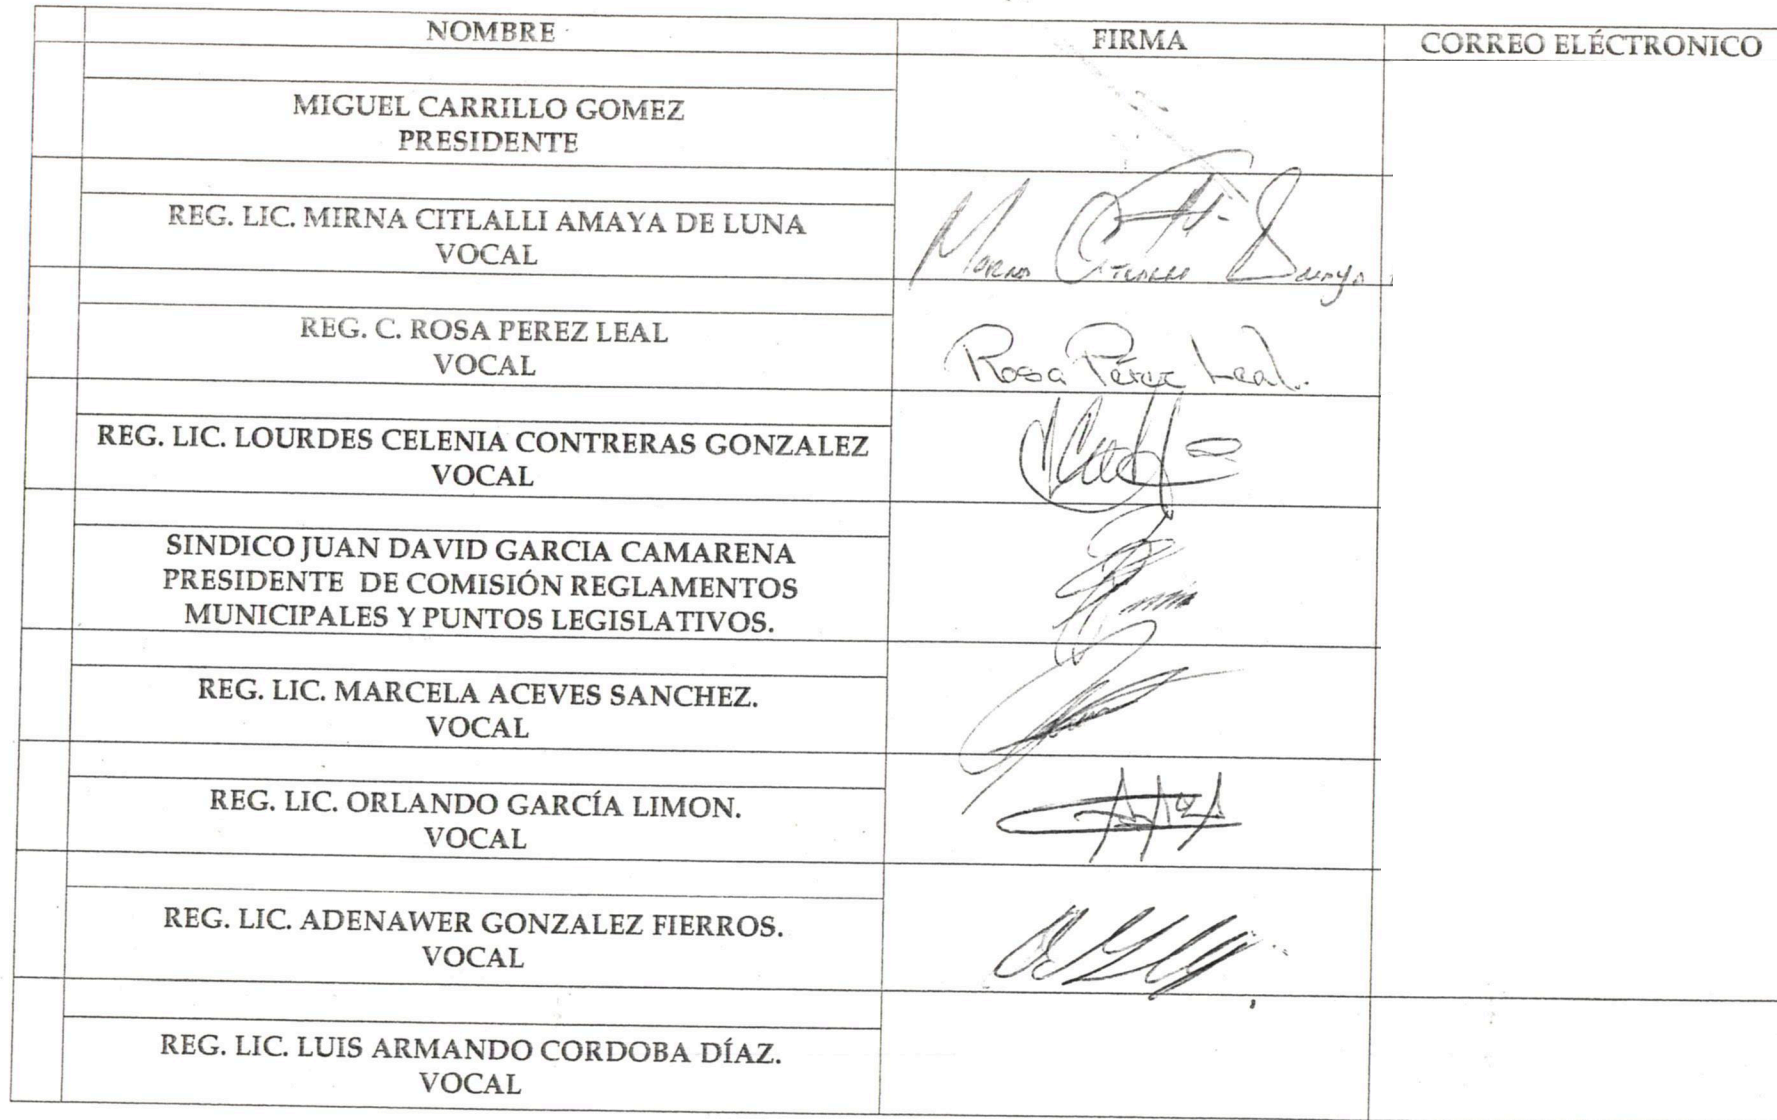 NOMBRE FIRMA CORREO ELÉCTRONICO
MIGUEL CARRILLO GOMEZ
PRESIDENTE
REG. LIC. MIRNA CITLALLI AMAYA DE LUNA
VOCAL
Mirna Citlalli Amaya
REG. C. ROSA PEREZ LEAL
VOCAL
Rosa Pérez Leal.
REG. LIC. LOURDES CELENIA CONTRERAS GONZALEZ
VOCAL
SINDICO JUAN DAVID GARCIA CAMARENA
PRESIDENTE DE COMISIÓN REGLAMENTOS
MUNICIPALES Y PUNTOS LEGISLATIVOS.
REG. LIC. MARCELA ACEVES SANCHEZ.
VOCAL
REG. LIC. ORLANDO GARCÍA LIMON.
VOCAL
REG. LIC. ADENAWER GONZALEZ FIERROS.
VOCAL
REG. LIC. LUIS ARMANDO CORDOBA DÍAZ.
VOCAL